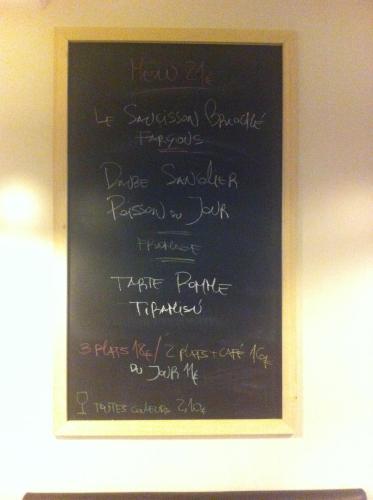 MENU 21€
LE SAUCISSON BRIOCHÉ
FARÇOUS
DAUBE SANGLIER
POISSON DU JOUR
FROMAGE
TARTE POMME
TIRAMISU
3 PLATS 18€/ 2 PLATS + CAFÉ 16€
DU JOUR 11€
TOUTES COULEURS 2,10€